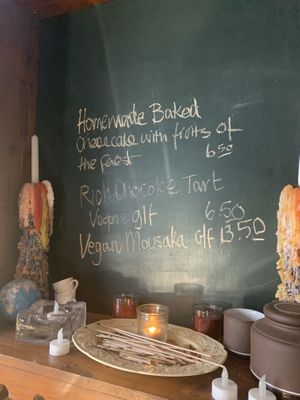 Homemade Baked
Cheesecake with fruits of
the forest 6.50
Rich Chocolate Tart
Vegan g/f 6.50
Vegan Mousaka G/f 13.50